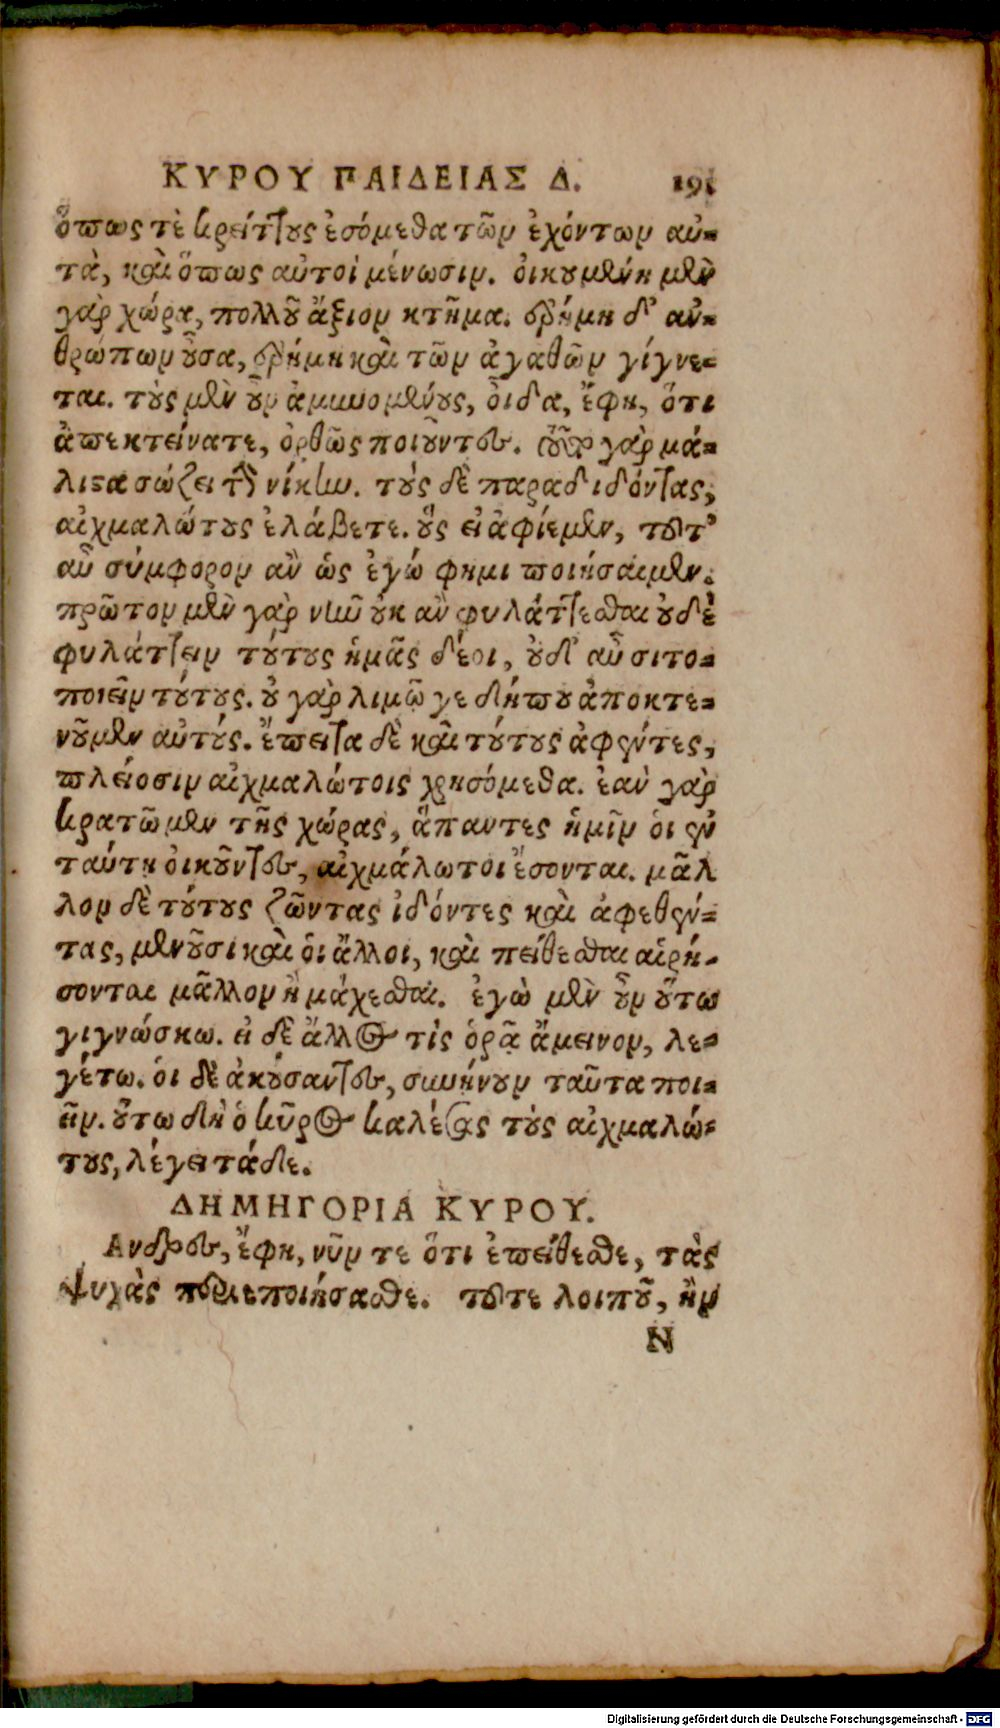 ΚΥΡΟΥ ΠΑΙΔΕΙΑΣ Δ. 191
ὅπως τὲ κρείτ͂τους ἐσόμεθα τῶν ἐχόντων αὐ-
τὰ, καὶ ὅπως αὐτοὶ μένωσιν. οἰκουμένη μὲν
γὰρ χώρα, πολλοῦ ἄξιον κτῆμα. ἐρήμη δ' αν-
θρώπων οὖσα, ἐρήμη καὶ τῶν ἀγαθῶν γίγνε-
ται. τοὺς μὲν οὖν ἀμυνομένους, οἶδα, ἔφη, ὅτι
ἀπεκτείνατε, ὀρθῶς ποιοῦντες. τοῦτο γὰρ μά-
λιστα σώζει τὴν νίκην. τοὺς δὲ παραδιδόντας,
αἰχμαλώτους ἐλάβετε. οὓς εἰ ἀφίεμεν, τοῦτ'
αὖ σύμφορον ἂν ὡς ἐγώ φημι ποιήσαιμεν.
πρῶτον μὲν γὰρ νῦν οὐκ ἂν φυλάττεσθαι οὐδὲ
φυλάττειν τούτους ἡμᾶς δέοι, οὐδ' αὖ σιτο-
ποιεῖν τούτους. οὐ γὰρ λιμῷ γε δήπου ἀποκτε-
νοῦμεν αὐτούς. ἔπειτα δὲ καὶ τούτους ἀφέντες,
πλείοσιν αἰχμαλώτοις χρησόμεθα. ἐὰν γὰρ
κρατῶμεν τῆς χώρας, ἅπαντες ἡμῖν οἱ ἐν
ταύτῃ οἰκοῦντες, αἰχμάλωτοι ἔσονται. μᾶλ
λον δὲ τούτους ζῶντας ἰδόντες καὶ ἀφεθέν-
τας, μενοῦσι καὶ οἱ ἄλλοι, καὶ πείθεσθαι αἱρή-
σονται μᾶλλον ἢ μάχεσθαι. ἐγὼ μὲν οὖν οὕτω
γιγνώσκω. εἰ δὲ ἄλλος τὶς ὁρᾷ ἄμεινον, λε-
γέτω. οἱ δὲ ἀκούσαντες, συνῄνουν ταῦτα ποι-
εῖν. οὕτω δὴ ὁ κῦρος καλέσας τοὺς αἰχμαλώ-
τους, λέγει τάδε.
ΔΗΜΗΓΟΡΙΑ ΚΥΡΟΥ.
Ανδρες, ἔφη, νῦν τε ὅτι ἐπείθεσθε, τὰς
ψυχὰς περιεποιήσασθε. τοῦτε λοιποῦ, ἢν
N
Digitalisierung gefördert durch die Deutsche Forschungsgemeinschaft - DFG